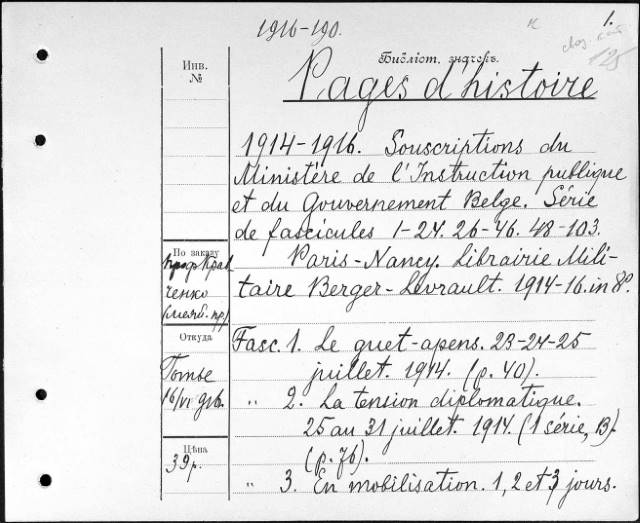 1916-190.
1.
125
Инв.
№
Библіот. значокъ.
Pages d'histoire
1914-1916. Souscriptions du
Ministère de l'Instruction publique
et du Gouvernement Belge. Série
de fascicules 1-24. 26-46. 48-103.
Paris-Nancy. Librairie Mili-
taire Berger-Levrault. 1914-16. in 8º.
По заказу
проф Крав
ченко
Откуда
Готье
16/VI 916.
Цѣна
39 р.
Fasc. 1. Le guet-apens. 23-24-25
juillet. 1914. (p. 40).
" 2. La tension diplomatique.
25 au 31 juillet. 1914. (1 série, B).
(p. 76).
" 3. En mobilisation. 1, 2 et 3 jours.